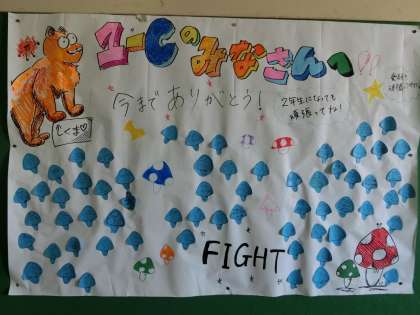 1-Cのみなさんへ!!
今までありがとう!
2年生になっても
頑張ってね!
FIGHT